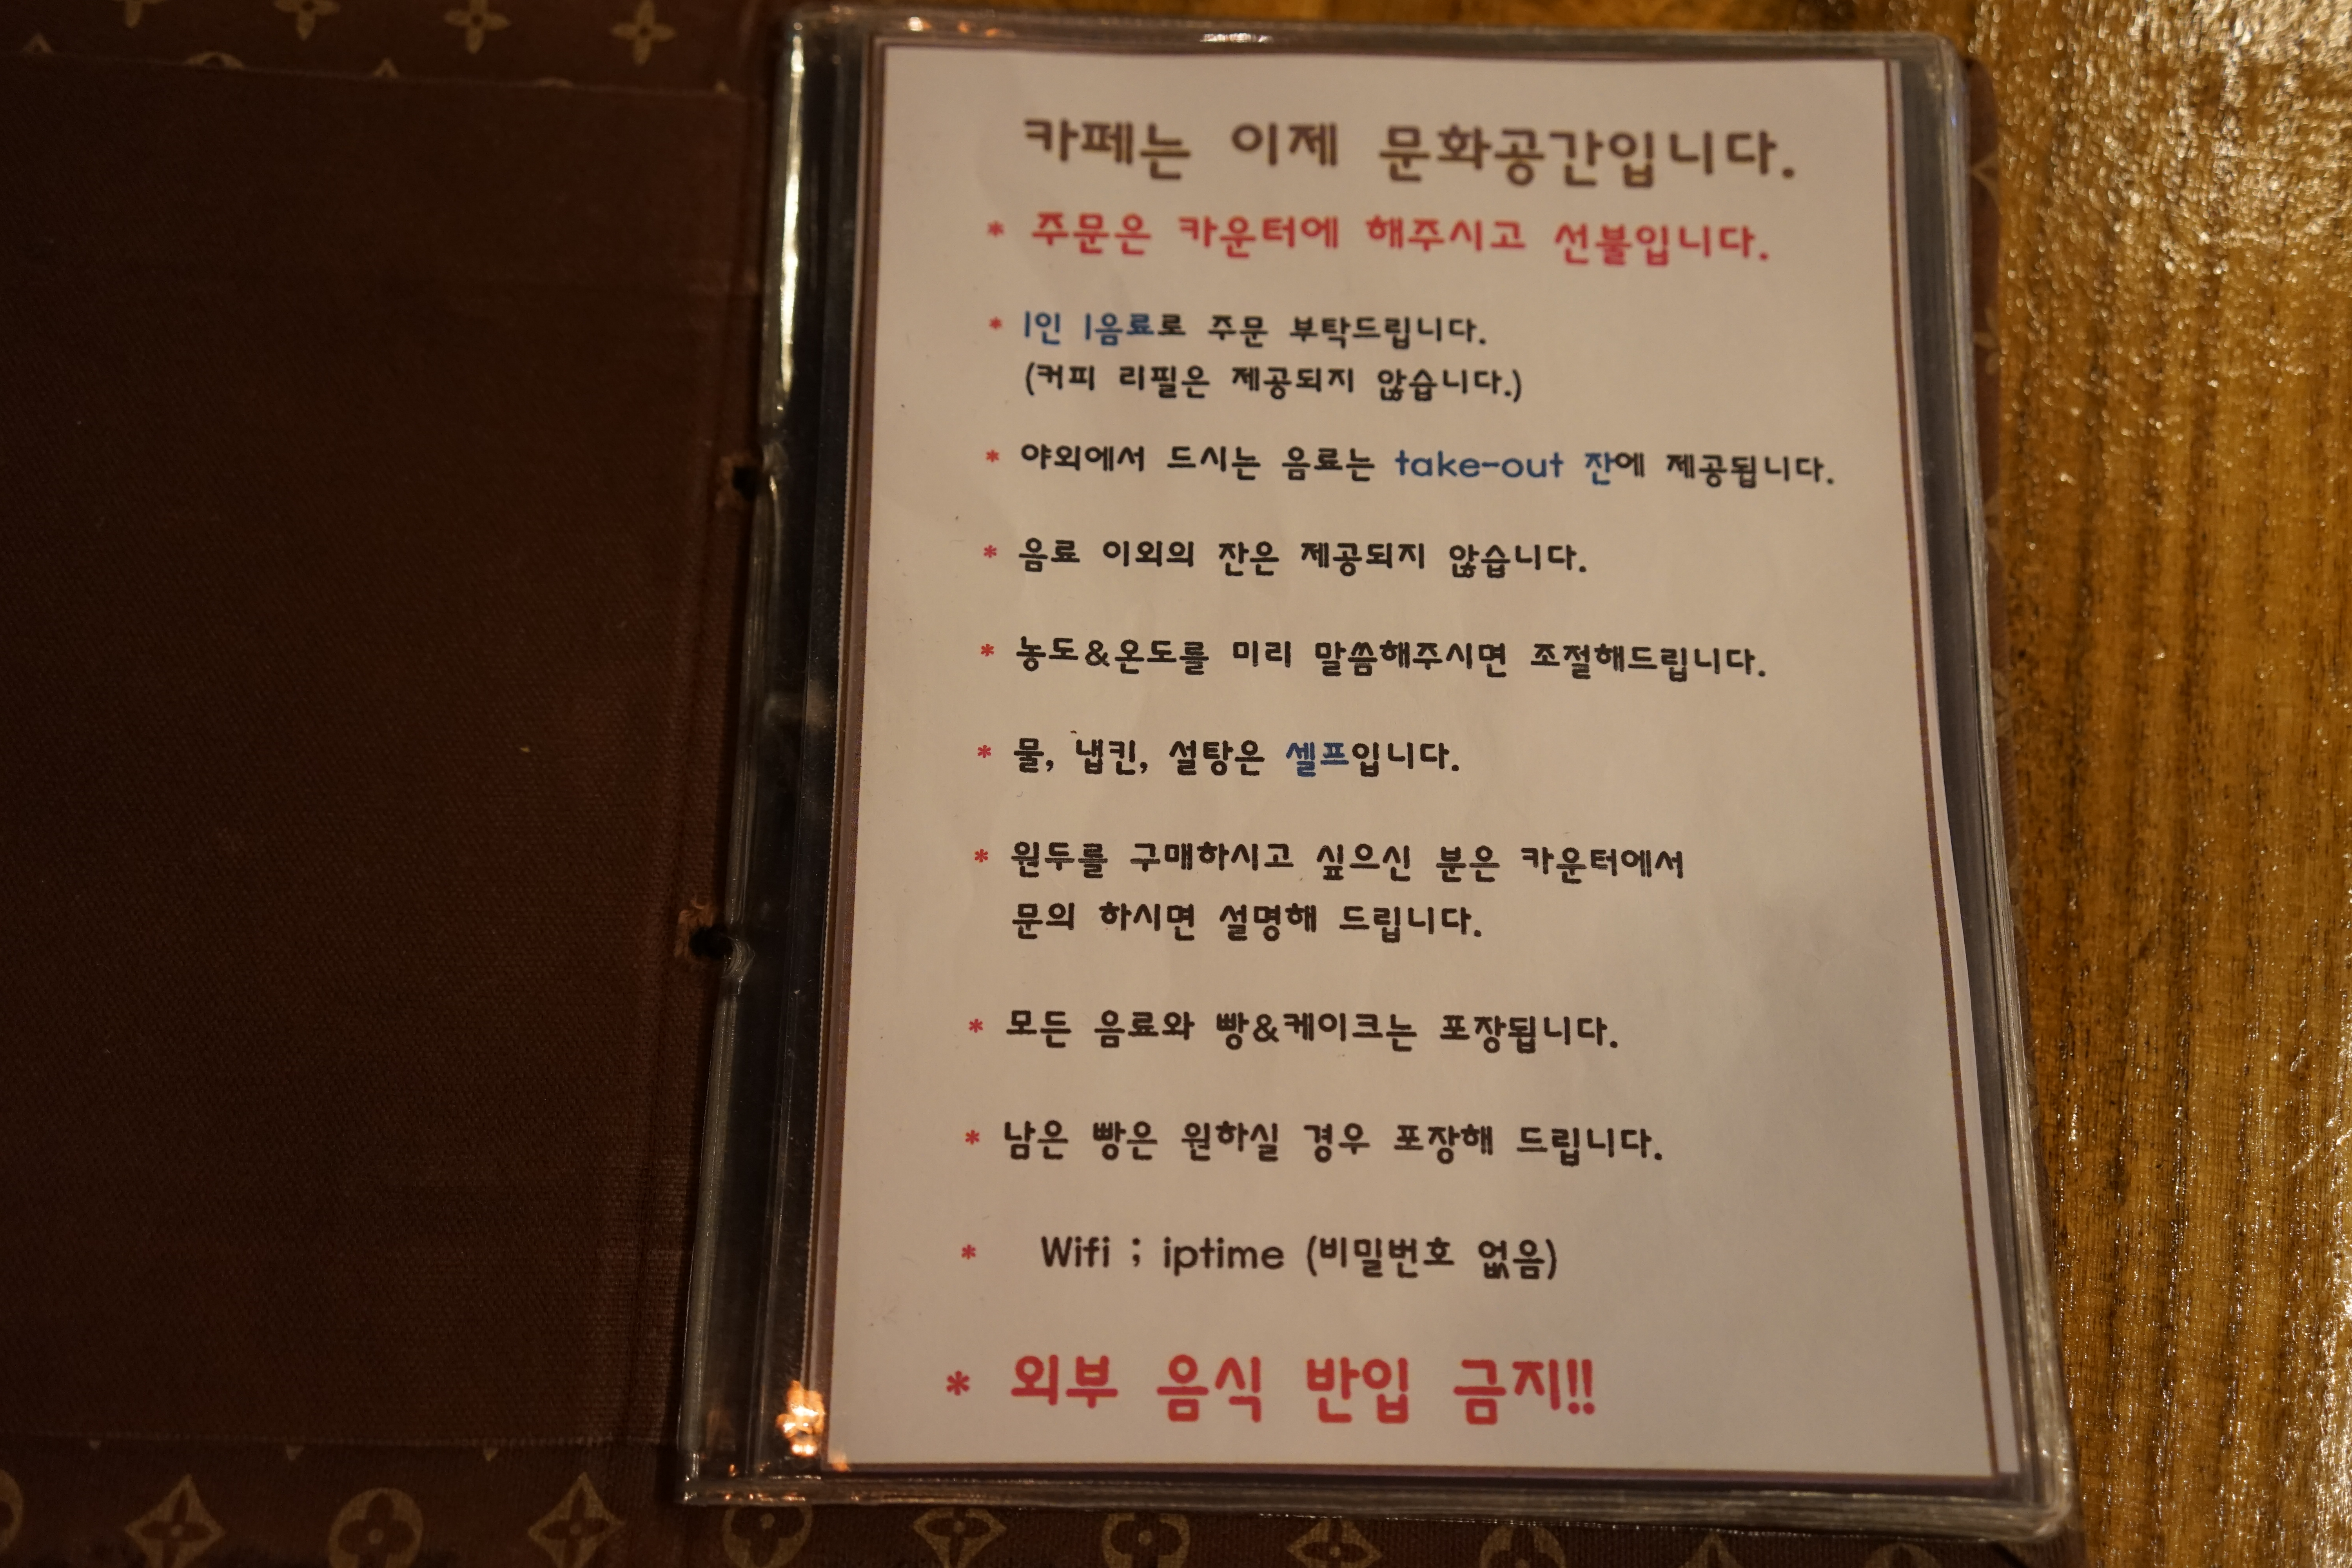 카페는 이제 문화공간입니다.
* 주문은 카운터에 해주시고 선불입니다.
* 1인 1음료로 주문 부탁드립니다.
(커피 리필은 제공되지 않습니다.)
* 야외에서 드시는 음료는 take-out 잔에 제공됩니다.
* 음료 이외의 잔은 제공되지 않습니다.
* 농도&온도를 미리 말씀해주시면 조절해드립니다.
* 물, 냅킨, 설탕은 셀프입니다.
* 원두를 구매하시고 싶으신 분은 카운터에서
문의 하시면 설명해 드립니다.
* 모든 음료와 빵&케이크는 포장됩니다.
* 남은 빵은 원하실 경우 포장해 드립니다.
* Wifi ; iptime (비밀번호 없음)
* 외부 음식 반입 금지!!